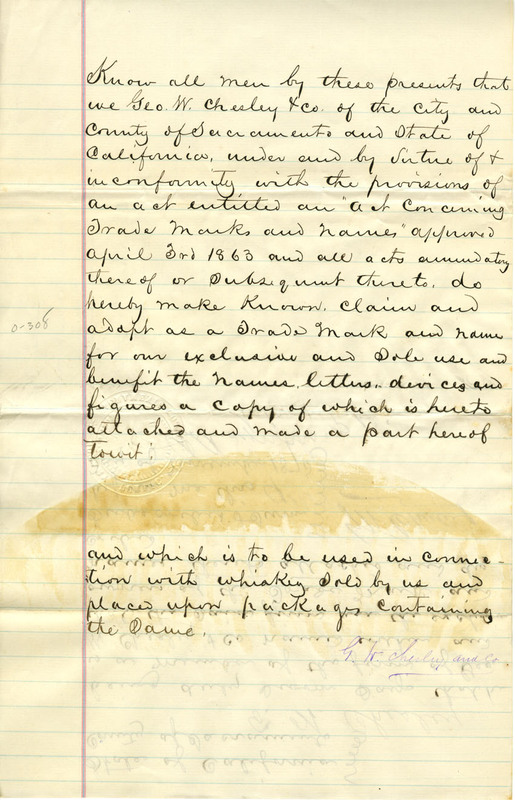 Know all men by these presents that
we Geo. W. Chesley & co. of the City and
County of Sacramento and State of
California, under and by Virtue of &
in conformity with the provisions of
an act entitled an "act Concerning
Trade Marks and Names" approved
April 3rd 1863 and all acts amendatory
thereof or Subsequent thereto, do
hereby make Known, Claim and
adopt as a Trade Mark and name
for our exclusive and Sole use and
benefit the names, letters, devices and
figures a copy of which is hereto
attached and made a part hereof
Towit;
and which is to be used in connec-
tion with whiskey Sold by us and
placed upon packages containing
the Same.
G. W. Chesley and Co.
0-308